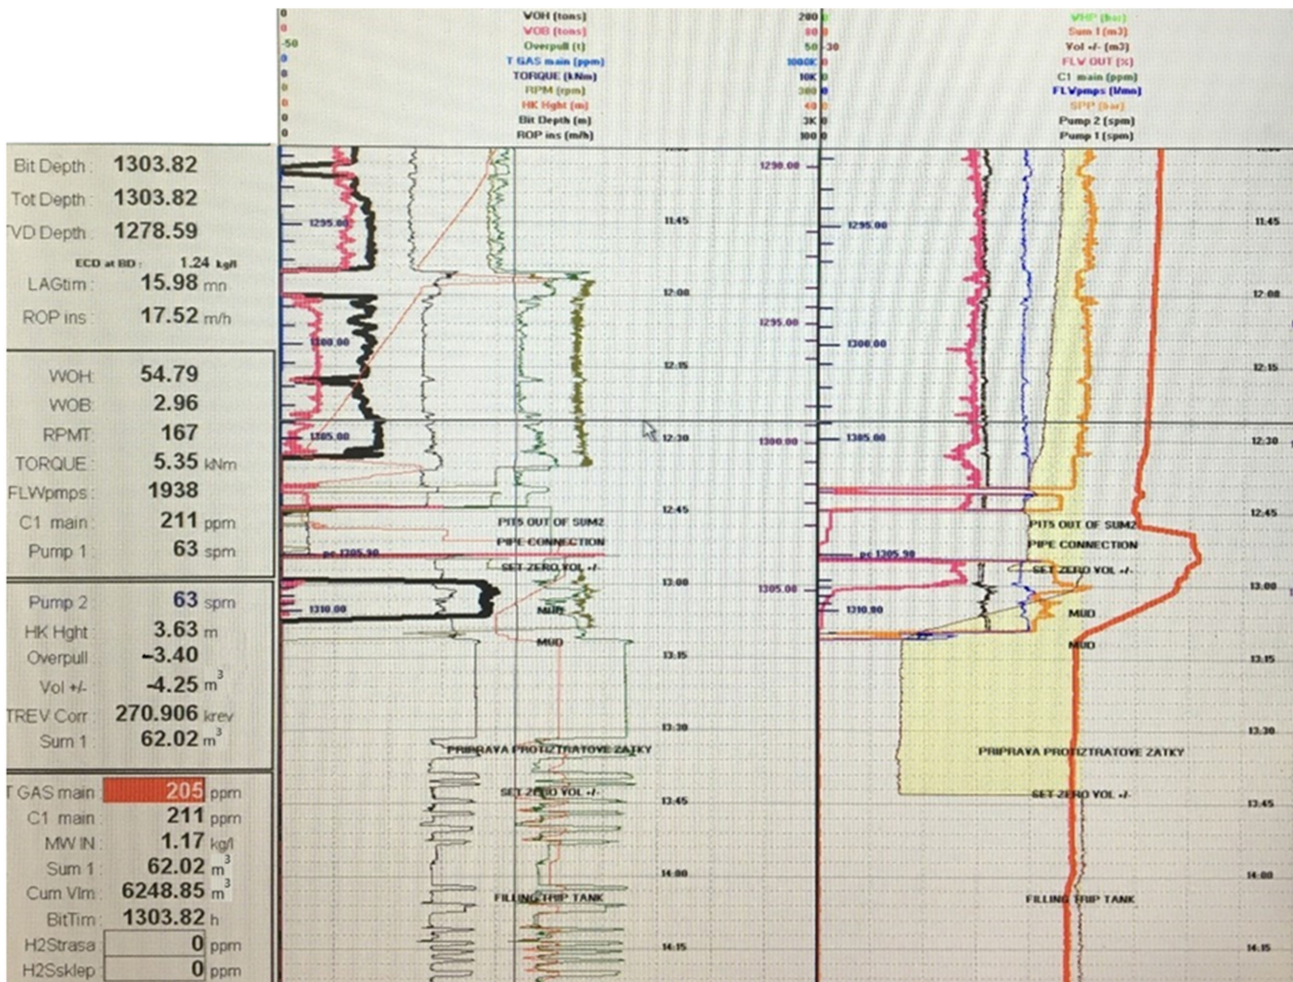 0 WOH (tons) 200
0 WOB (tons) 80
-50 Overpull (t) 50
0 T GAS main (ppm) 1000K
0 TORQUE (kNm) 10K
0 RPM (rpm) 300
0 HK Hght (m) 40
0 Bit Depth (m) 3K
0 ROP ins (m/h) 100
0 WHP (bar)
0 Sum 1 (m3)
-30 Vol +/- (m3)
0 FLW OUT (%)
0 C1 main (ppm)
0 FLWpmps (l/mn)
0 SPP (bar)
0 Pump 2 (spm)
0 Pump 1 (spm)
Bit Depth : 1303.82
Tot Depth : 1303.82
TVD Depth : 1278.59
ECD at BD : 1.24 kg/l
LAGtim : 15.98 mn
ROP ins : 17.52 m/h
WOH: 54.79
WOB: 2.96
RPMT: 167
TORQUE : 5.35 kNm
FLWpmps : 1938
C1 main : 211 ppm
Pump 1 : 63 spm
Pump 2 : 63 spm
HK Hght : 3.63 m
Overpull : -3.40
Vol +/- -4.25 m3
TREV Corr : 270.906 krev
Sum 1 : 62.02 m3
T GAS main 205 ppm
C1 main : 211 ppm
MW IN : 1.17 kg/l
Sum 1 : 62.02 m3
Cum Vlm : 6248.85 m3
BitTim : 1303.82 h
H2Strasa 0 ppm
H2Ssklep 0 ppm
1295.00
1300.00
1305.00
pc 1305.90
1310.00
11:45
12:00
12:15
12:30
12:45
13:00
13:15
13:30
13:45
14:00
14:15
PITS OUT OF SUM2
PIPE CONNECTION
SET ZERO VOL +/-
MUD
MUD
PRIPRAVA PROTIZTRATOVE ZATKY
SET ZERO VOL +/-
FILLING TRIP TANK
1290.00
1295.00
1300.00
1305.00
1295.00
1300.00
1305.00
pc 1305.90
1310.00
PITS OUT OF SUM2
PIPE CONNECTION
SET ZERO VOL +/-
MUD
MUD
PRIPRAVA PROTIZTRATOVE ZATKY
SET ZERO VOL +/-
FILLING TRIP TANK
11:45
12:00
12:15
12:30
12:45
13:00
13:15
13:30
13:45
14:00
14:15